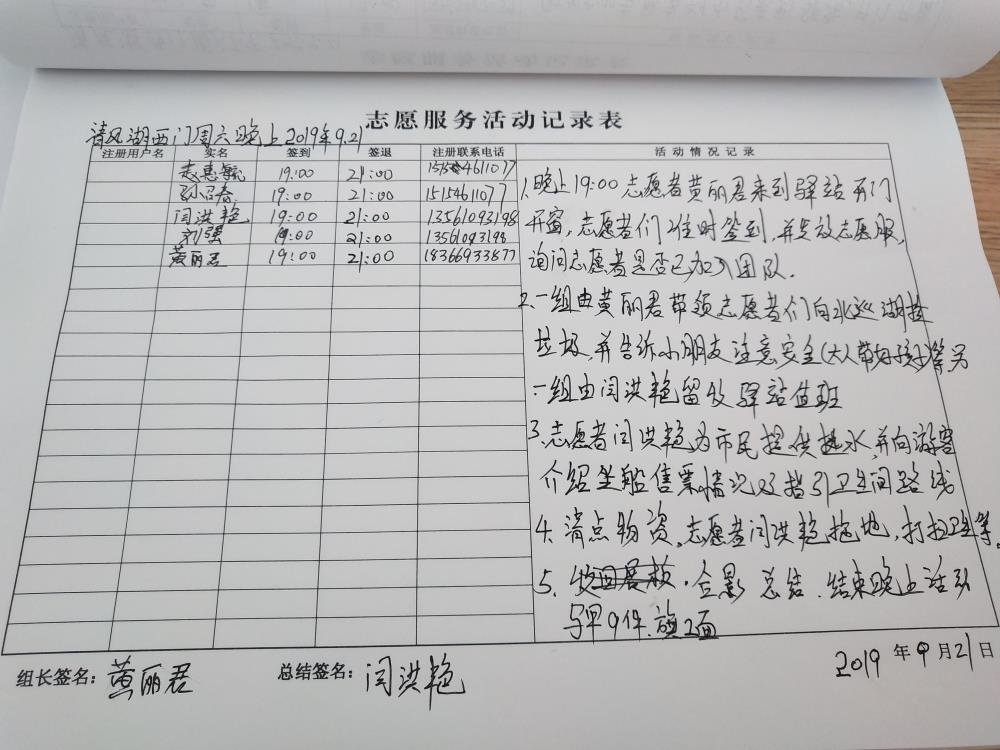 志愿服务活动记录表
清风湖西门周六晚上2019年9.21
注册用户名 实名 签到 签退 注册联系电话 活动情况记录
19:00 21:00 4611077
孙召春 19:00 21:00 15154611077
闫洪艳 19:00 21:00 13561093198
刘强 19:00 21:00 13561093198
黄丽君 19:00 21:00 18366933877
1.晚上19:00志愿者黄丽君来到驿站开门
开窗,志愿者们准时签到,并发放志愿服,
询问志愿者是否已加入团队.
2.一组由黄丽君带领志愿者们向北巡湖捡
垃圾,并告诉小朋友注意安全(大人带好孩子)等另
一组由闫洪艳留守驿站值班
3.志愿者闫洪艳为市民提供热水,并向游客
介绍坐船售票情况及指引卫生间路线
4.清点物资,志愿者闫洪艳拖地,打扫卫生等。
5. 合影 总结.结束晚上活动
9件.旗2面
组长签名:黄丽君 总结签名:闫洪艳 2019年9月21日